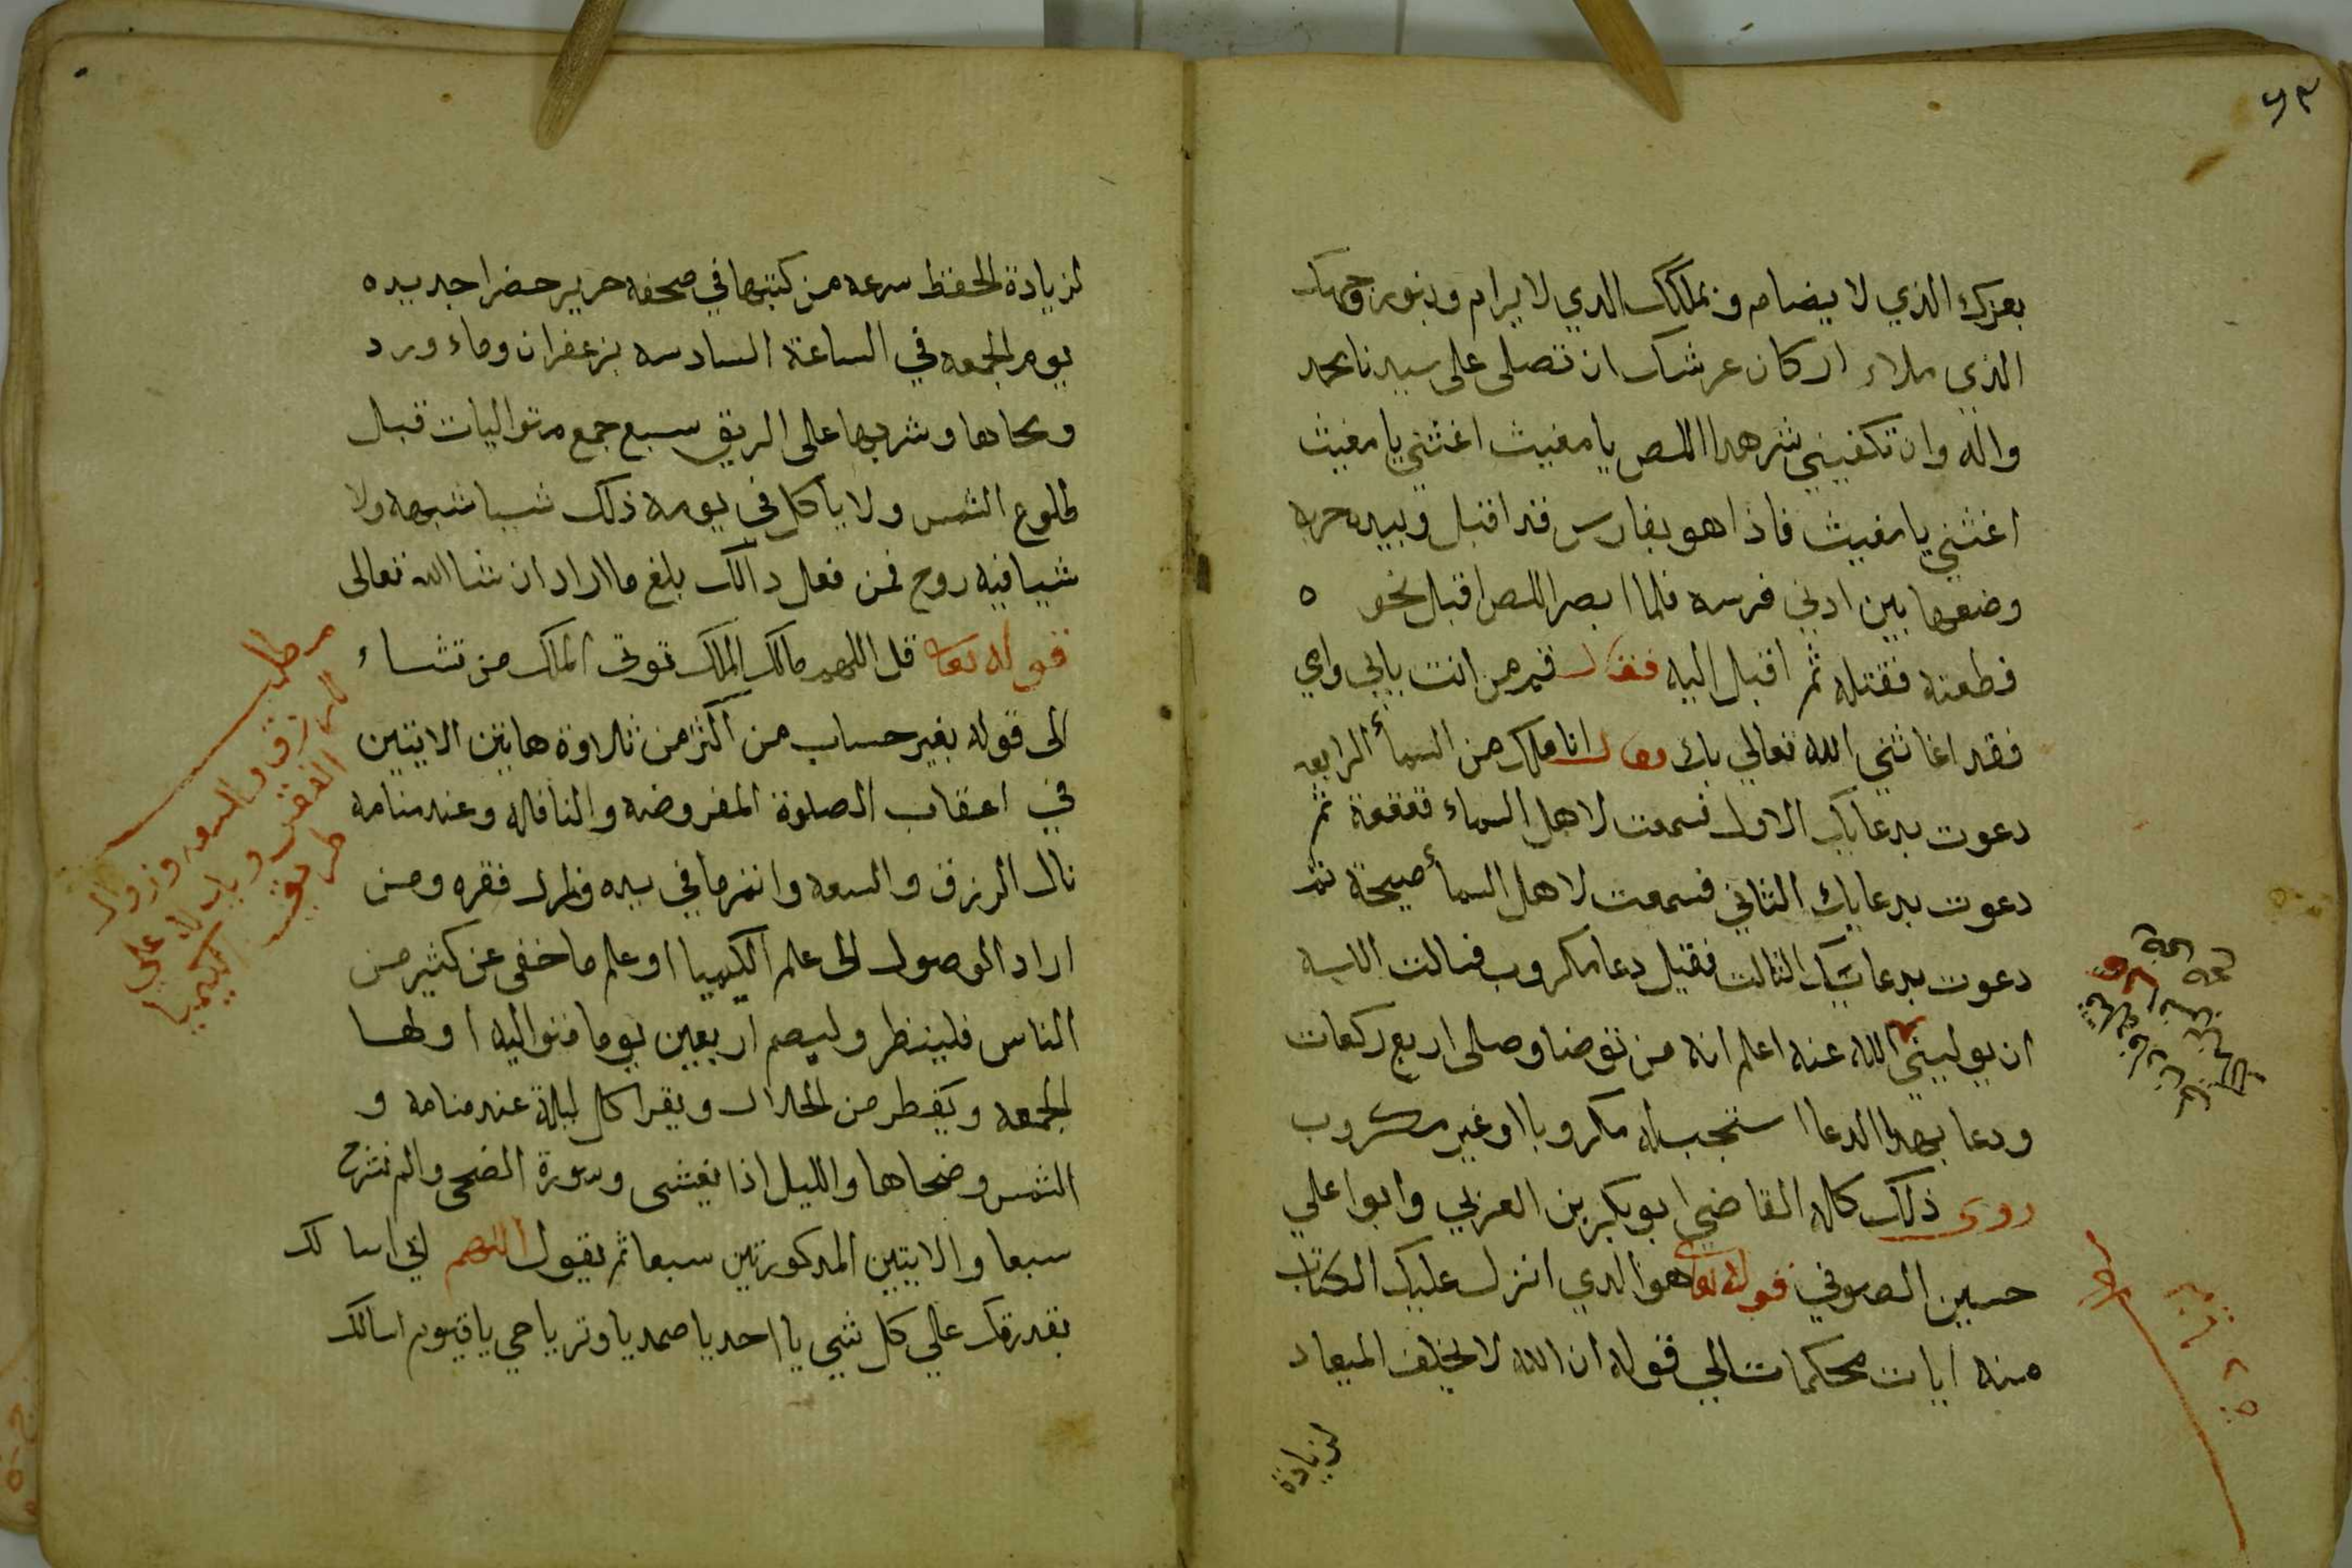 ٤٣
بعزك الذي لا يضام وبملكك الدي لا يرام وبنور وجهك
الذي ملاء اركان عرشك ان تصلى على سيدنا محمد
واله وان تكفيني شر هدا اللص يا مغيث اغثني يا مغيث
اغثني يا مغيث فاذا هو بفارس قد اقبل وبيده حربه
وضعها بين ادني فرسه فلما ابصر اللص اقبل نحو ه
فطعنه فقتله ثم اقبل اليه فقال قم من انت بابي وامي
فقد اغاثني الله تعالي بك وقال انا ملك من السمأ الرابعه
دعوت بدعايك الاول فسمعت لاهل السماء قعقعة ثم
دعوت بدعايك الثاني فسمعت لاهل السمأ صيحة ثم
دعوت بدعايك الثالث فقيل دعا مكروب فسالت الله
ان يوليني الله عنه اعلم انه من توضا وصلى اربع ركعات
ودعا بهدا الدعا استجب له مكروبا او غير مكروب
روى ذلك كله القاضي ابو بكر بن العربي وابوا علي
حسين الصوفي قوله تعا هو الدي انزل عليك الكتاب
منه ايات محكمات الي قوله ان الله لا يخلف الميعاد
لزيادة
لزيادة الحفظ سرعه من كتبها في صحفه حرير خضرا جديده
يوم الجمعه في الساعة السادسه بزعفران وماء ورد
ومحاها وشربها على الريق سبع جمع متواليات قبل
طلوع الشمس ولا ياكل في يومه ذلك شيا شبهه ولا
شيا فيه روح فمن فعل دالك بلغ ما اراد ان شا الله تعالى
قوله تعا قل اللهم مالك الملك توتى الملك من تشاء
الى قوله بغير حساب من اكثر من تلاوة هاتين الايتين
في اعقاب الصلوة المفروضه والنافله وعند منامه
نال الرزق والسعه وانمز ما في يده وزال فقره ومن
اراد الوصول الى علم الكيميا او علم ما خفى عن كثير من
الناس فلينظر وليصم اربعين يوما متواليه اولها
الجمعه ويفطر من الحلال ويقرا كل ليلة عند منامه و
الشمس وضحاها والليل اذا يغشى وسورة الضحى والم نشرح
سبعا والايتين المدكورتين سبعا ثم يقول اللهم اني اسالك
بقدرتك علي كل شي يا احد يا صمد يا وتر يا حي يا قيوم اسالك
مطلب
للرزق والسعه وزوال
الفقر وبات له على
طريق الكيميا